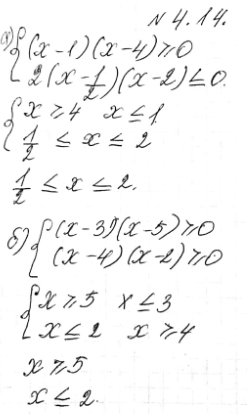 № 4.14.
а) { (x-1)(x-4) ≥ 0
2(x-1/2)(x-2) ≤ 0.
{ x ≥ 4 x ≤ 1
1/2 ≤ x ≤ 2
1/2 ≤ x ≤ 2.
б) { (x-3)(x-5) ≥ 0
(x-4)(x-2) ≥ 0
{ x ≥ 5 x ≤ 3
x ≤ 2 x ≥ 4
x ≥ 5
x ≤ 2.